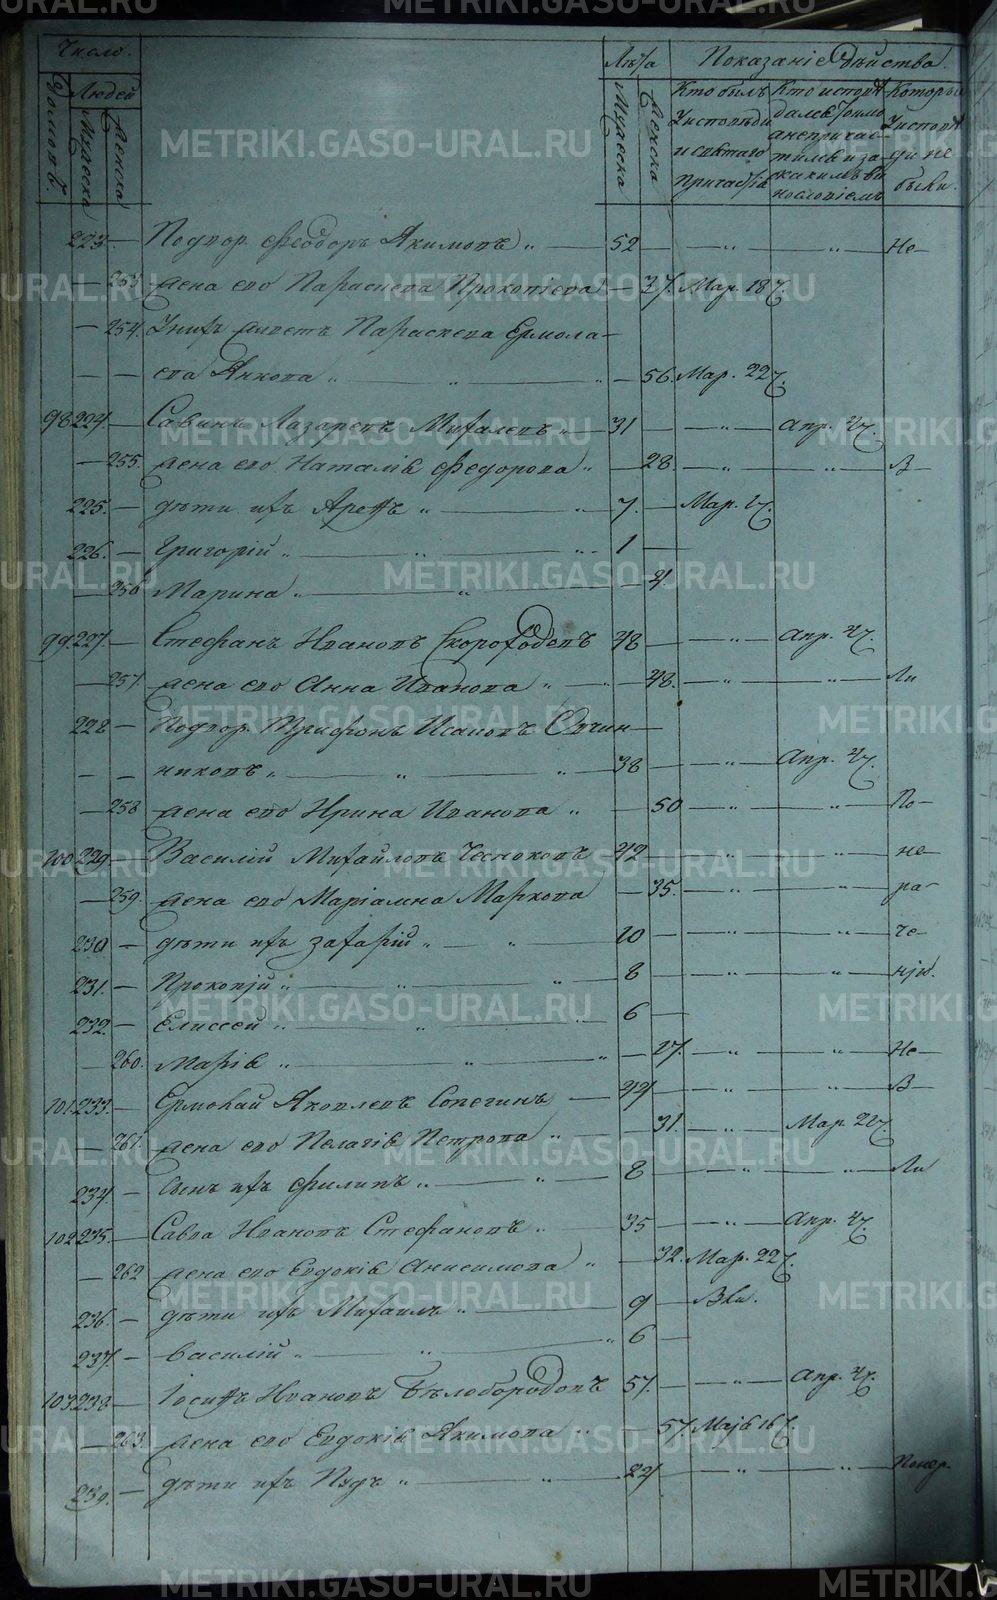 Число. Лѣта Показаніе Дѣйства.
Домовъ. Людей Мужеска Женска Мужеска Женска
Кто былъ У исповѣди и святаго Причастія
Кто исповѣдалъ токмо а не причастился и за какимъ винословіемъ
Которыи У исповѣди не были.
223. — Подвор. Феодоръ Якимовъ „ — 52 — „ — „ — Не
— 253. жена его Параскева Прокопіева — 37. Мар. 18 7.
— 254. У нихъ живетъ Параскева Ермола-
— — ева „ — „ — 56. Мар. 22 7.
98. 224. — Савинъ Лазаревъ Михалевъ „ — 31 — „ — Апр. 4 7.
— 255. жена его Наталія Федорова „ — 28. — „ — „ — В
225. — дѣти ихъ Арефъ „ — „ — 7. — Мар. 1 7.
226. — Григорій „ — „ — „ — 1 —
— 256 Марина „ — „ — 4.
99. 227. — Стефанъ Ивановъ Скороходовъ 48 — „ — Апр. 4 7.
— 257. жена его Анна Иванова „ — „ — 48. — „ — „ — Ли
228 — Подвор. Трифонъ Исаковъ Овчин-
— — никовъ „ — „ — „ — 38 — „ — Апр. 4 7.
— 258 жена его Ирина Иванова „ — 50 — „ — „ — По-
100. 229. — Василій Михайловъ Чесноковъ 42 — „ — „ — не-
— 259. жена его Маріамна Маркова — 35. — „ — „ — ра-
230 — дѣти ихъ Захарій „ — „ — 10 — „ — „ — че-
231. — Прокопій „ — „ — „ — 8 — „ — „ — нію.
232. — Елиссей „ — „ — „ — 6 —
— 260. Марія „ — „ — „ — 17. — „ — „ — Не
101. 233. — Ермолай Яковлевъ Сопегинъ — 44 — „ — „ — В
— 261. жена его Пелагія Петрова „ — 31. — „ — Мар. 22 7.
234. — сынъ ихъ Филипъ „ — „ — 8 — „ — „ — Ли
102. 235. — Савва Ивановъ Стефановъ „ — 35 — „ — Апр. 4 7.
— 262 жена его Евдокія Анисимова „ — 32. Мар. 22 7.
236. — дѣти ихъ Михаилъ „ — 9 — Вли.
237. — Василій „ — „ — „ 6 —
103. 238. — Іосифъ Ивановъ Бѣлобородовъ 57. — „ — Апр. 4 7.
— 263. жена его Евдокія Якимова „ — 57. Маія 16 7.
239. — дѣти ихъ Пудъ „ — „ — 22 — „ — „ — Понер.
METRIKI.GASO-URAL.RU